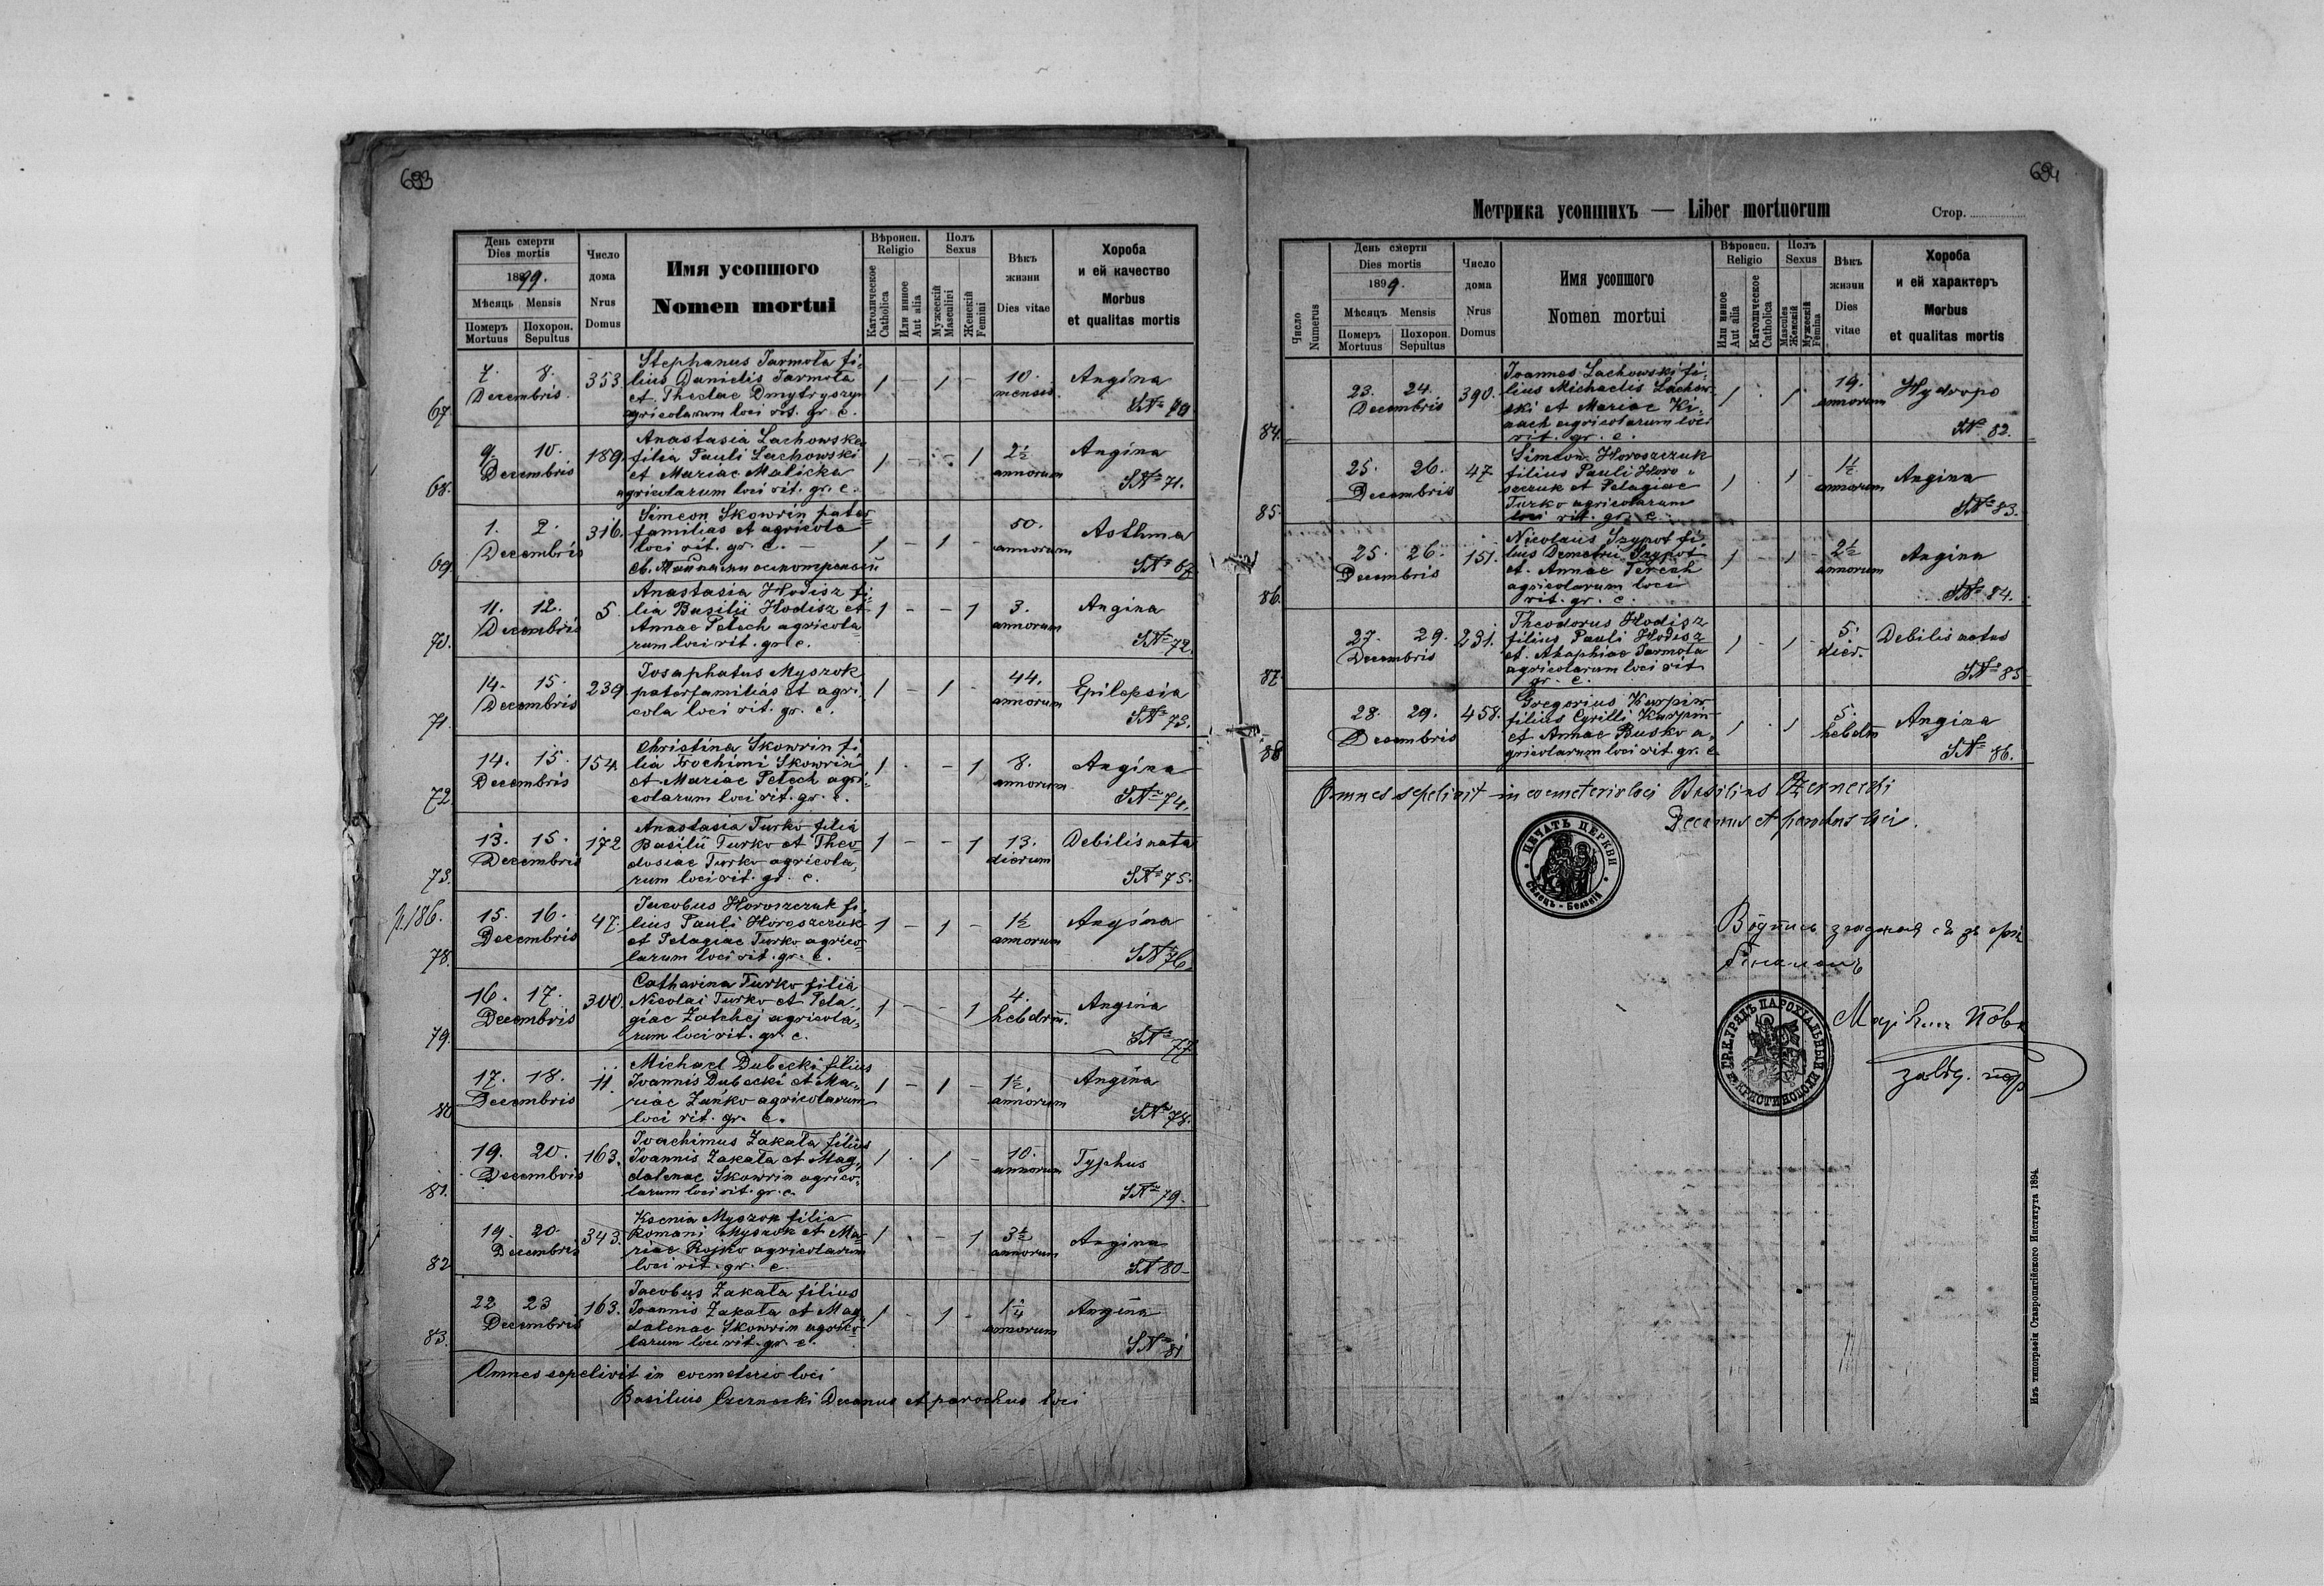 693
День смерти
Dies mortis
1899.
Мѣсяць Mensis
Померъ Похорон.
Mortuus Sepultus
Число
дома
Nrus
Domus
Имя усопшого
Nomen mortui
Вѣроисп.
Religio
Католическое
Catholica
Или инное
Aut alia
Полъ
Sexus
Мужескій
Masculini
Женскій
Femini
Вѣкъ
жизни
Dies vitae
Хороба
и ей качество
Morbus
et qualitas mortis
67. 7. 8. Decembris 353. Stephanus Jarmoła fi-
lius Danielis Jarmoła
et Theclae Dmytryszyn
agricolarum loci rit. gr. c.
1 - 1 - 10. mensis. Angina
SNo 70.
68. 9. 10. Decembris 189. Anastasia Lachowska
filia Pauli Lachowski
et Mariae Malicka
agricolarum loci rit. gr. c.
1 - - 1 2½ annorum Angina
SNo 71.
69. 1. 2. Decembris 316. Simeon Skowrin pater-
familias et agricola
loci rit. gr. c. —
1 - 1 - 50. annorum Asthma
70. 11. 12. Decembris 5. Anastasia Hodisz fi-
lia Basilii Hodisz et
Annae Petech agricola-
rum loci rit. gr. c.
1 - - 1 3. annorum Angina
SNo 72.
71. 14. 15. Decembris 239 Josaphatus Myszok
paterfamilias et agri-
cola loci rit. gr. c.
1 - 1 - 44. annorum Epilepsia
SNo 73.
72. 14. 15. Decembris 154. Christina Skowrin fi-
lia Trochimi Skowrin
et Mariae Petech agri-
colarum loci rit. gr. c.
1 - - 1 8. annorum Angina
SNo 74.
73. 13. 15. Decembris 172 Anastasia Turko filia
Basilii Turko et Theo-
dosiae Turko agricola-
rum loci rit. gr. c.
1 - - 1 13. dierum Debilis nata
SNo 75.
p. 186.
78. 15. 16. Decembris 47. Jacobus Horoszczuk fi-
lius Pauli Horoszczuk
et Pelagiae Turko agrico-
larum loci rit. gr. c.
1 - 1 - 1½ annorum Angina
SNo 76
79. 16. 17. Decembris 300. Catharina Turko filia
Nicolai Turko et Pela-
giae Zatchej agricola-
rum loci rit. gr. c.
1 - - 1 4. hebdm. Angina
SNo 77
80 17. 18. Decembris 11. Michael Dubecki filius
Joannis Dubecki et Ma-
riae Zańko agricolarum
loci rit. gr. c.
1 - 1 - 1½. annorum Angina
SNo 78.
81. 19. 20. Decembris 163. Joachimus Zakała filius
Joannis Zakała et Mag-
dalenae Skowrin agrico-
larum loci rit. gr. c.
1 - 1 - 10. annorum Typhus
SNo 79.
82 19. 20. Decembris 343. Ksenia Myszok filia
Romani Myszok et Ma-
riae Rojko agricolarum
loci rit. gr. c.
1 - - 1 3½ annorum Angina
SN 80
83. 22 23 Decembris 163. Jacobus Zakała filius
Joannis Zakała et Mag-
dalenae Skowrin agrico-
larum loci rit. gr. c.
1 - 1 - annorum Angina
SNo 81
Omnes sepelivit in coemeterio loci
Basilius Czernecki Decanus et parochus loci
694
Метрика усопшихъ — Liber mortuorum
Стор.
Число
Numerus
День смерти
Dies mortis
1899.
Мѣсяцъ Mensis
Померъ Похорон.
Mortuus Sepultus
Число
дома
Nrus
Domus
Имя усопшого
Nomen mortui
Вѣроисп.
Religio
Или инное
Aut alia
Католическое
Catholica
Полъ
Sexus
Mascules
Женскій
Мужескій
Femina
Вѣкъ
жизни
Dies
vitae
Хороба
и ей характеръ
Morbus
et qualitas mortis
84. 23. 24. Decembris 390. Joannes Lachowski fi-
lius Michaelis Lachow-
ski et Mariae
agricolarum loci
rit. gr. c.
1 1 19. annorum Hydrops
SNo 82.
85. 25. 26. Decembris 47 Simeon Horoszczuk
filius Pauli Horo-
szczuk et Pelagiae
Turko agricolarum
loci rit. gr. c.
1 1 1½ annorum Angina
SNo 83.
86. 25. 26. Decembris 151. Nicolaus Szypot fi-
lius Demetrii Szypot
et Annae Terech
agricolarum loci
rit. gr. c.
1 1 2½ annorum Angina
SNo 84.
87. 27. 29. Decembris 231. Theodorus Hodisz
filius Pauli Hodisz
et Ahaphiae Jarmoła
agricolarum loci rit
gr. c.
1 1 5. dier. Debilis natus
SNo 85
88 28. 29. Decembris 458. Gregorius Karpin
filius Cyrilli Karpin
et Annae Busko a-
gricolarum loci rit. gr. c.
1 1 5. hebdm Angina
SNo 86.
Omnes sepelivit in coemeterio loci Basilius Czernecki
Decanus et parochus loci.
ПЕЧАТЬ ЦЕРКВИ
Сѣлець - Белзкій
ГР.К.УРЯДЪ ПАРОХІАЛЬНЫЙ
Изъ типографіи Ставропигійского Института 1894